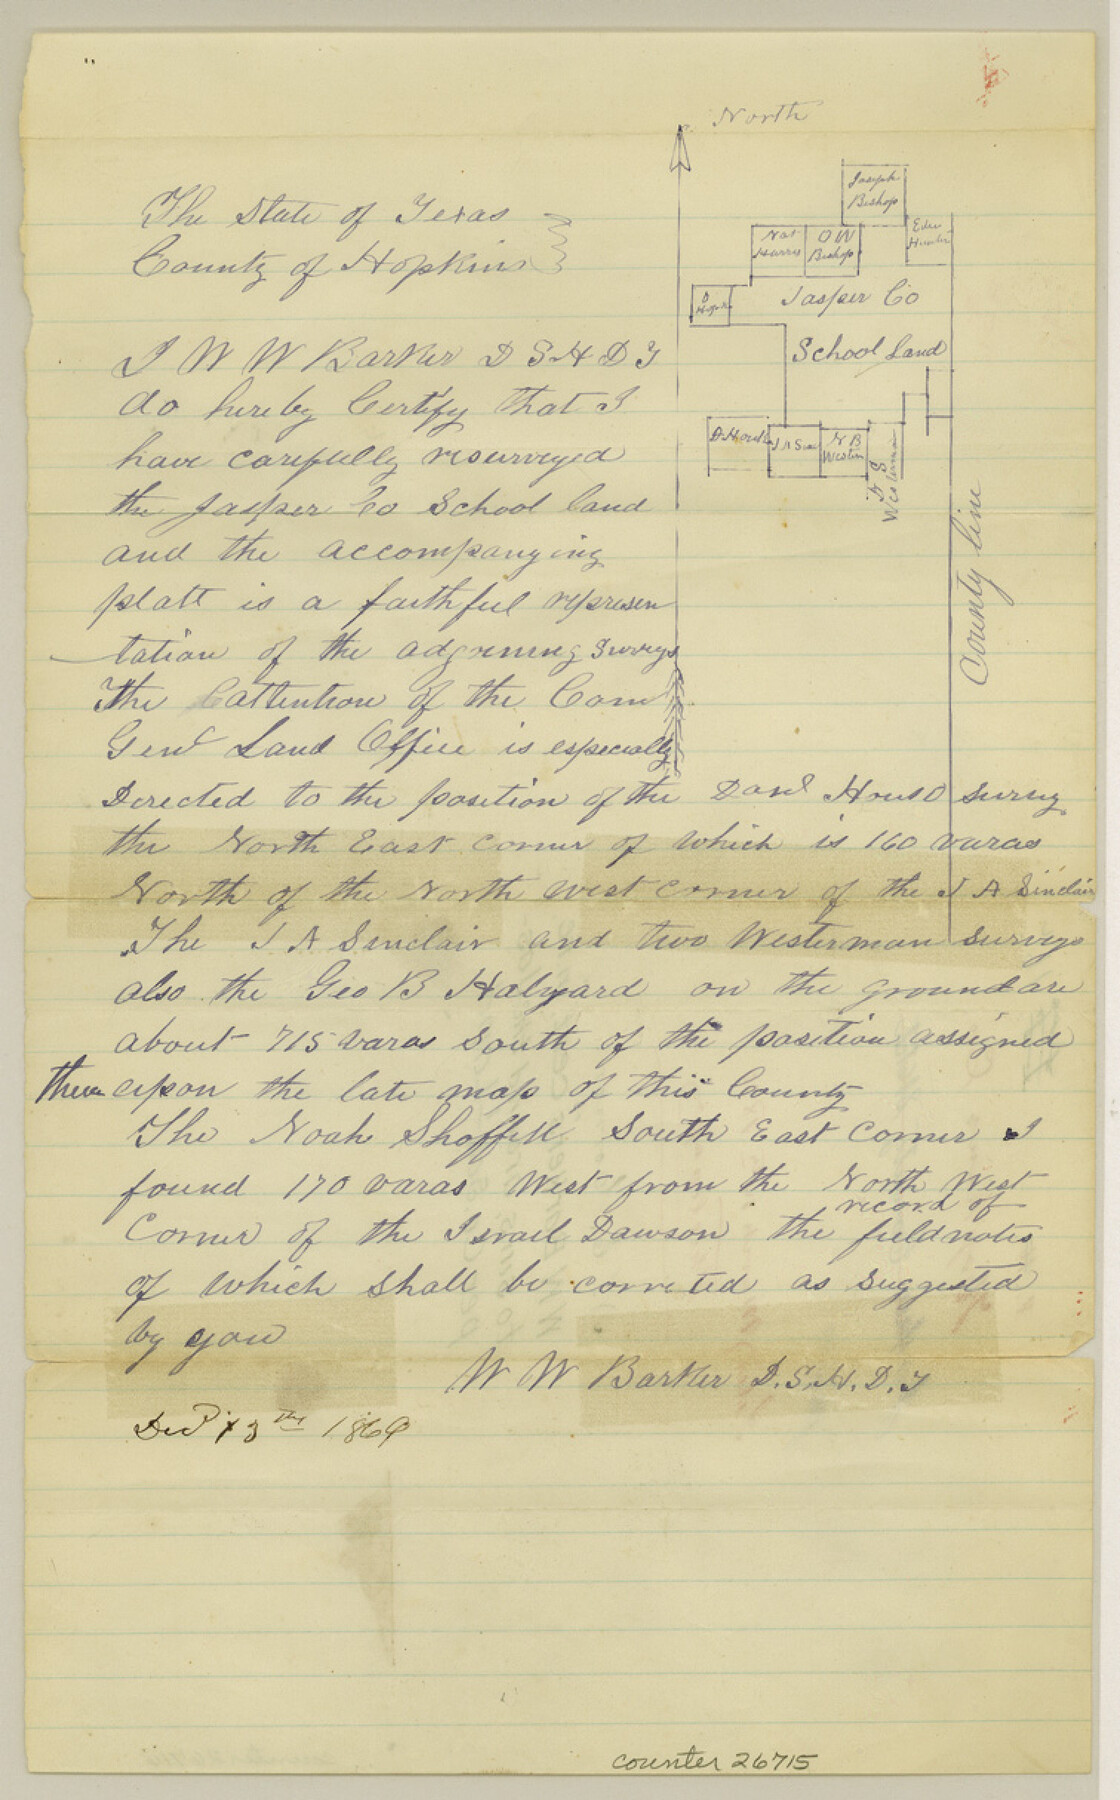 North
Joseph
Bishop
Nat
Harris
O W
Bishop
Eden
Hunter
D
Jasper Co
School Land
D. House
J A Sin
N B
Westerm
D S
Westerman
County line
The State of Texas
County of Hopkins
I W W Barker D S H D T
do hereby Certify that I
have carefully resurveyed
the Jasper Co School land
and the accompanying
platt is a faithful represen
tation of the adjoining surveys
The attention of the Com
Genl Land Office is especially
Directed to the position of the Danl House survey
the North East corner of which is 160 varas
North of the North west corner of the J A Sinclair
The J A Sinclair and two Westerman surveys
also the Geo B Halyard on the ground are
about 715 varas South of the position assigned
them upon the late map of this County
The Noah Shoffitt South East corner I
found 170 varas West from the North West
Corner of the Israel Dawson the record of fieldnotes
of which shall be corrected as suggested
by you
W W Barker D. S. H. D. T
Decr 13th 1869
counter 26715